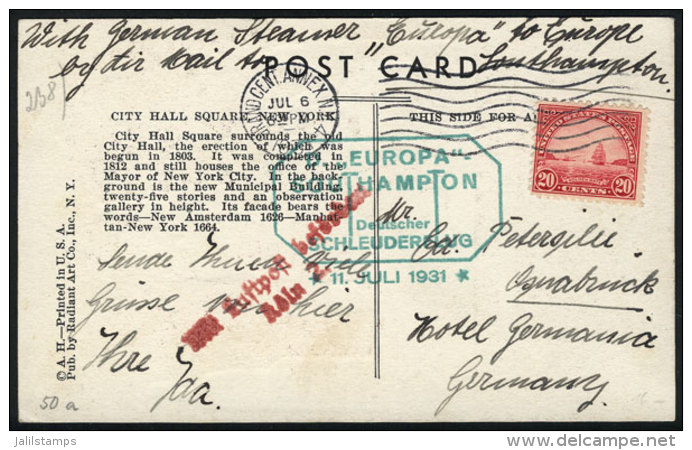 With German Steamer "Europa" to Europe
by Air Mail to Southampton.
POST CARD
GRAND CENT. ANNEX N.Y.
JUL 6
PM
2B8
CITY HALL SQUARE, NEW YORK
City Hall Square surrounds the old
City Hall, the erection of which was
begun in 1803. It was completed in
1812 and still houses the office of the
Mayor of New York City. In the back-
ground is the new Municipal Building,
twenty-five stories and an observation
gallery in height. Its facade bears the
words—New Amsterdam 1626—Manhat-
tan-New York 1664.
THIS SIDE FOR
UNITED STATES POSTAGE
20 CENTS 20
"EUROPA"
SOUTHAMPTON
Deutscher
SCHLEUDERFLUG
* 11. JULI 1931 *
Mit Luftpost befördert
Köln
Sende Ihnen viele
Grüsse von hier
Ihre
Ida.
Mr.
Ca. Petersilie
Osnabruck
Hotel Germania
Germany.
© A. H.—Printed in U. S. A.
Pub. by Radiant Art Co., Inc., N. Y.
50 a
jalilstamps
delcampe.net